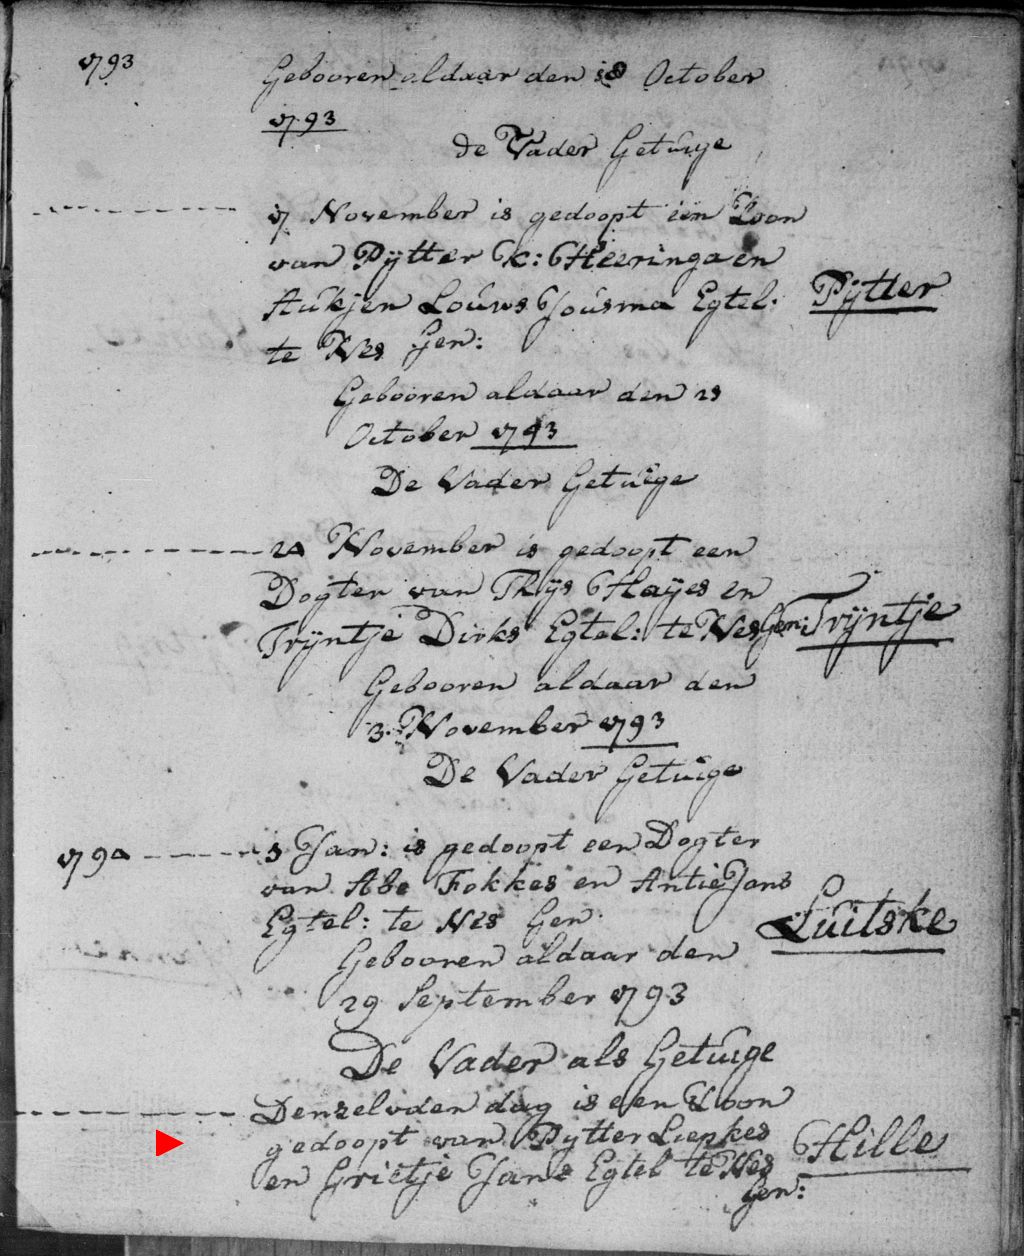 1793
Gebooren aldaar den 18 October
1793
de Vader Getuige
17 November is gedoopt een Zoon
van Pytter K: Heeringa en
Aukjen Louws Jousma Egtel: Pytter
te Nes Gen:
Gebooren aldaar den 23
October 1793
De Vader Getuige
24 November is gedoopt een
Dogter van Thys Hayes en
Tryntje Dirks Egtel: te Nes Gen: Tryntje
Gebooren aldaar den
3 November 1793
De Vader Getuige
1794 5 Jan: is gedoopt een Dogter
van Abe Fokkes en Antie Jans
Egtel: te Nes Gen: Luitske
Gebooren aldaar den
29 September 1793
De Vader als Getuige
Denzelvden dag is een Zoon
gedoopt van Pytter Liepkes Hille
en Grietje Jans Egtel te Nes
Gen: